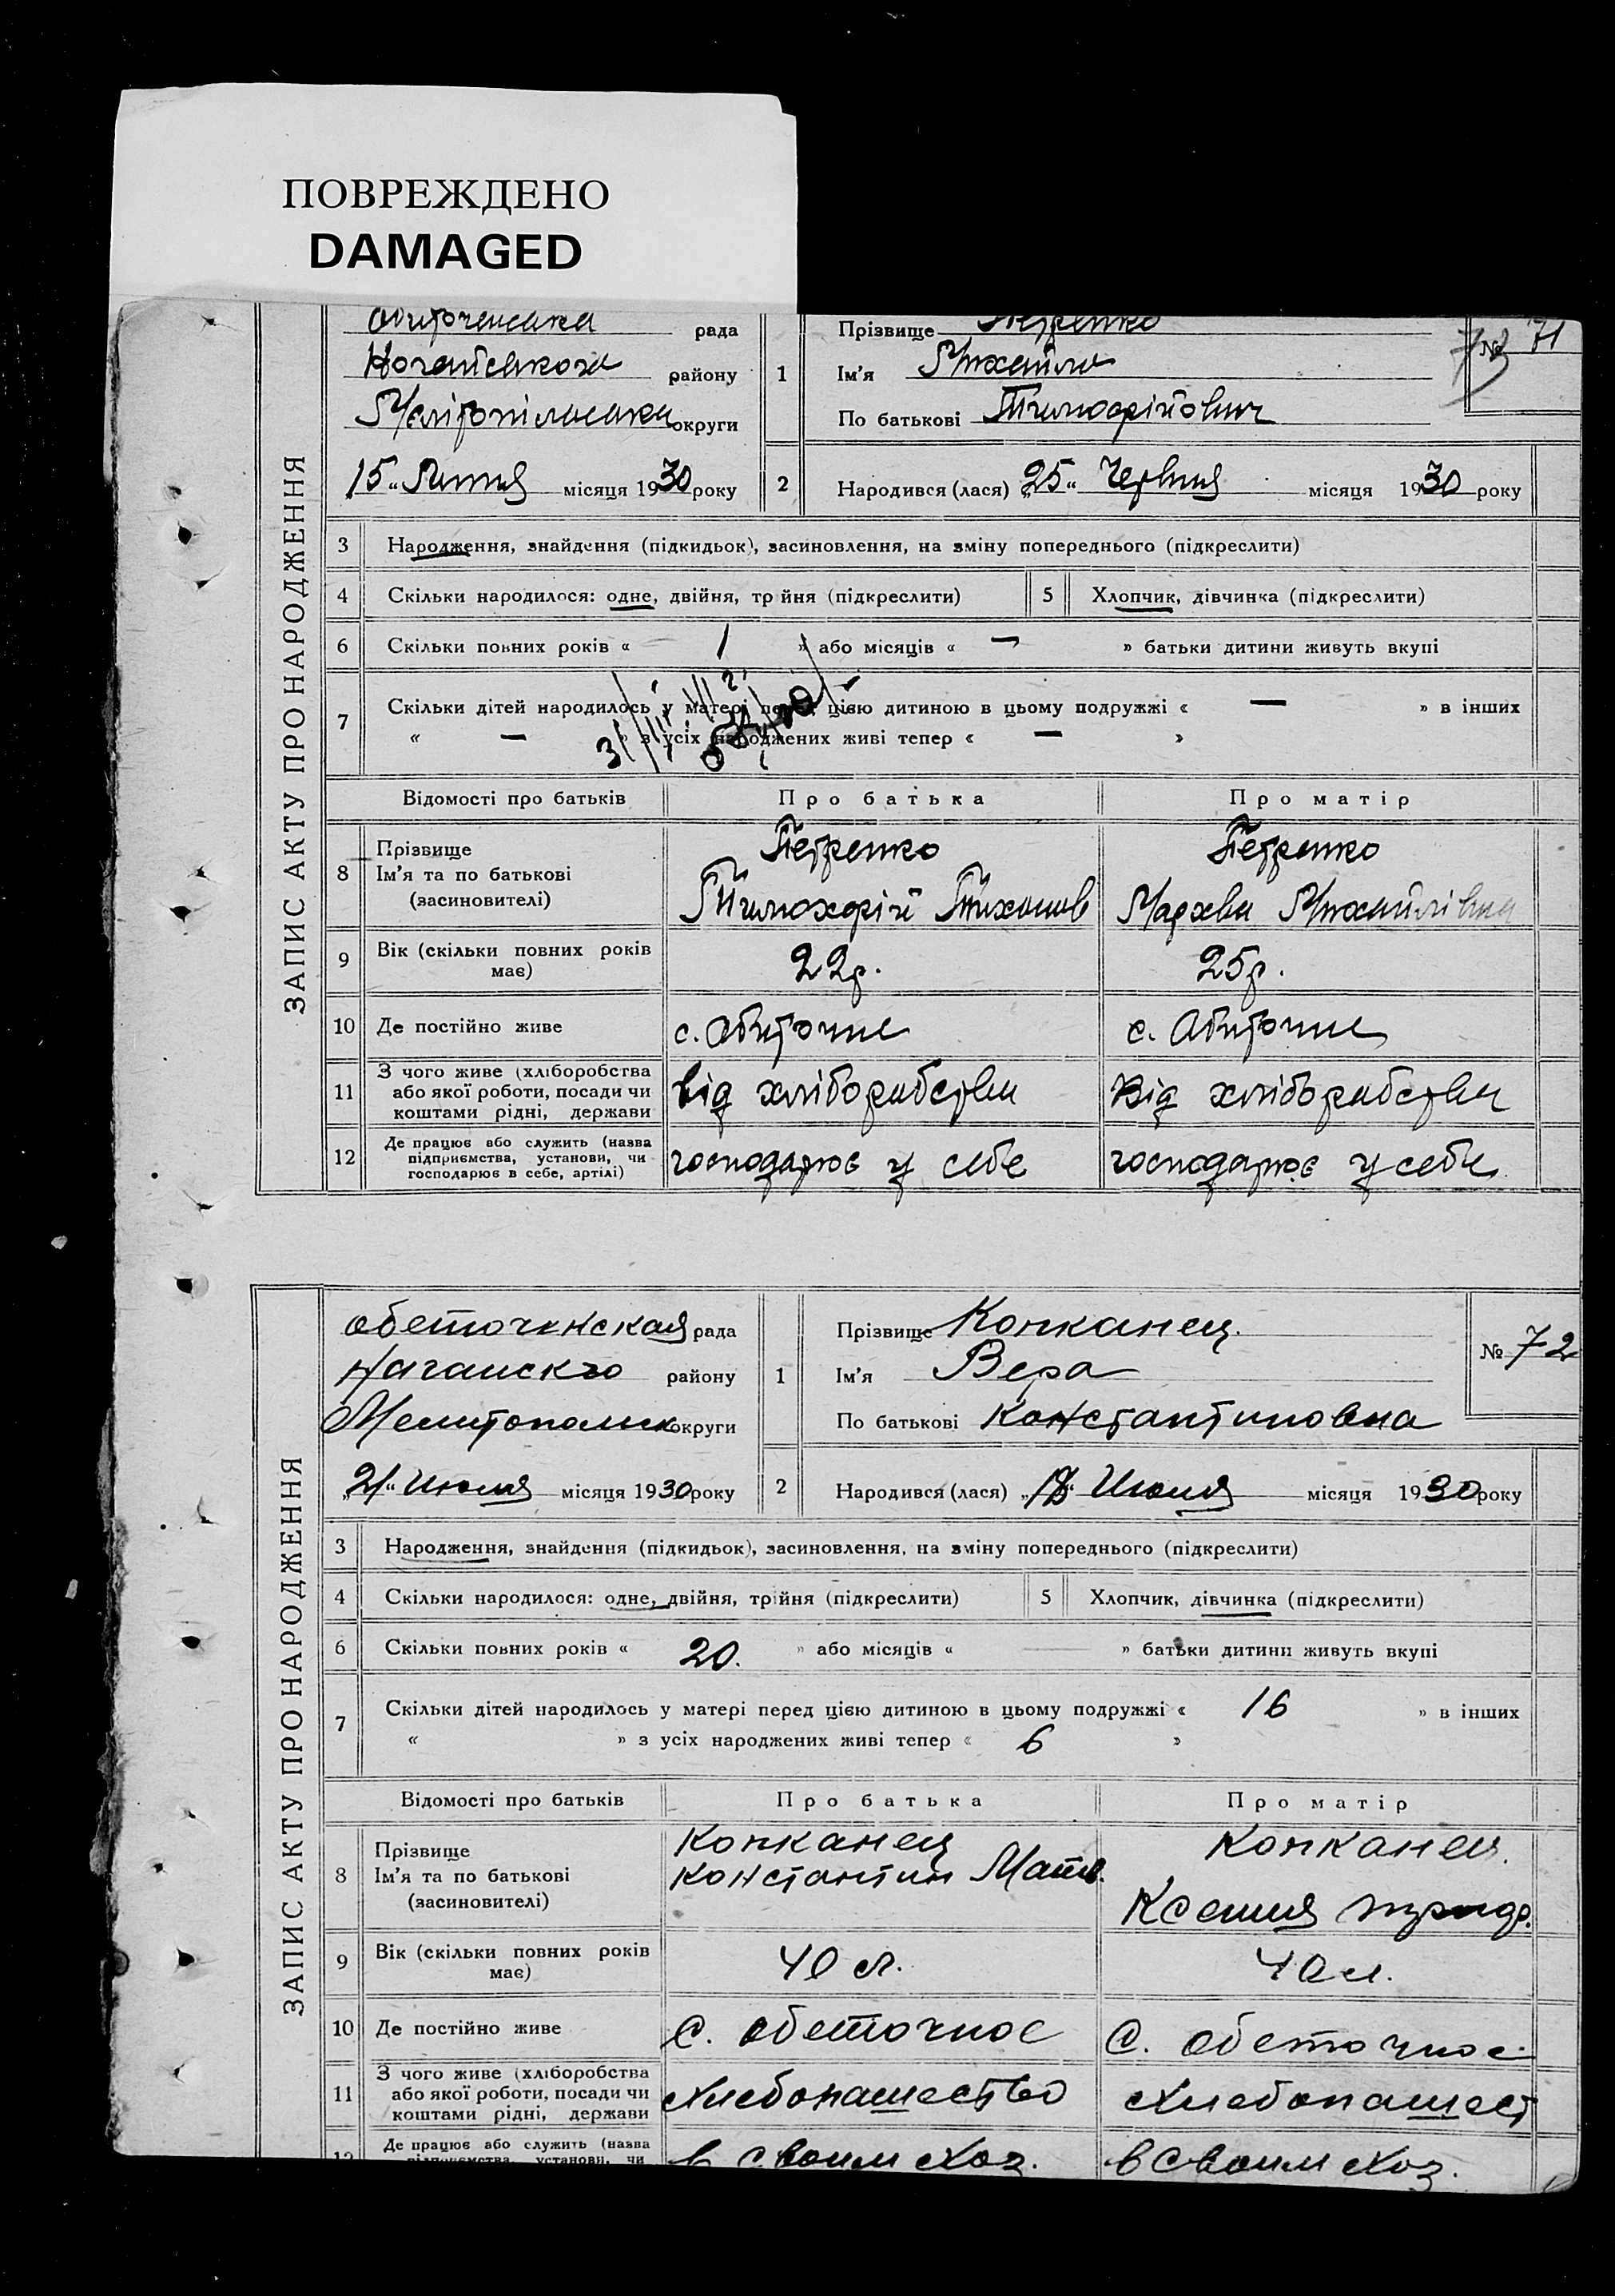 ПОВРЕЖДЕНО
DAMAGED
ЗАПИС АКТУ ПРО НАРОДЖЕННЯ
рада
району
округи
15 " Липня місяця 1930 року
1
Прізвище Петренко
Ім'я Михайло
По батькові Тимофійович
№ 71
73
2
Народився (лася) „25" Червня місяця 1930 року
3 Народження, знайдення (підкидьок), засиновлення, на зміну попереднього (підкреслити)
4 Скільки народилося: одне, двійня, трійня (підкреслити)
5 Хлопчик, дівчинка (підкреслити)
6 Скільки повних років « 1 » або місяців « — » батьки дитини живуть вкупі
7 Скільки дітей народилось у матері перед цією дитиною в цьому подружжі « — » в інших
« — » з усіх народжених живі тепер « — »
Відомості про батьків Про батька Про матір
8 Прізвище
Ім'я та по батькові
(засиновителі)
Петренко
Петренко
Михайлівна
9 Вік (скільки повних років
має)
22р.
25р.
10 Де постійно живе
с. Обиточне
с. Обиточне
11 З чого живе (хліборобства
або якої роботи, посади чи
коштами рідні, держави
від хліборобства
Від хліборобства
12 Де працює або служить (назва
підприємства, установи, чи
господарює в себе, артілі)
господарює у себе
господарює у себе
ЗАПИС АКТУ ПРО НАРОДЖЕННЯ
обеточенская рада
району
округи
„21" Июля місяця 1930 року
1
Прізвище Копканец.
Ім'я Вера
По батькові Константиновна
№ 72
2
Народився (лася) Июля місяця 1930 року
3 Народження, знайдення (підкидьок), засиновлення, на зміну попереднього (підкреслити)
4 Скільки народилося: одне, двійня, трійня (підкреслити)
5 Хлопчик, дівчинка (підкреслити)
6 Скільки повних років « 20. » або місяців « » батьки дитини живуть вкупі
7 Скільки дітей народилось у матері перед цією дитиною в цьому подружжі « 16 » в інших
« » з усіх народжених живі тепер « 6 »
Відомості про батьків Про батька Про матір
8 Прізвище
Ім'я та по батькові
(засиновителі)
Копканец
Константин Матв.
Копканец.
Ксения
9 Вік (скільки повних років
має)
40 л.
40 л.
10 Де постійно живе
С. обеточное
С. обеточное
11 З чого живе (хліборобства
або якої роботи, посади чи
коштами рідні, держави
хлебопашество
хлебопашест
12 Де працює або служить (назва
підприємства, установи, чи
в своим хоз.
в своим хоз.